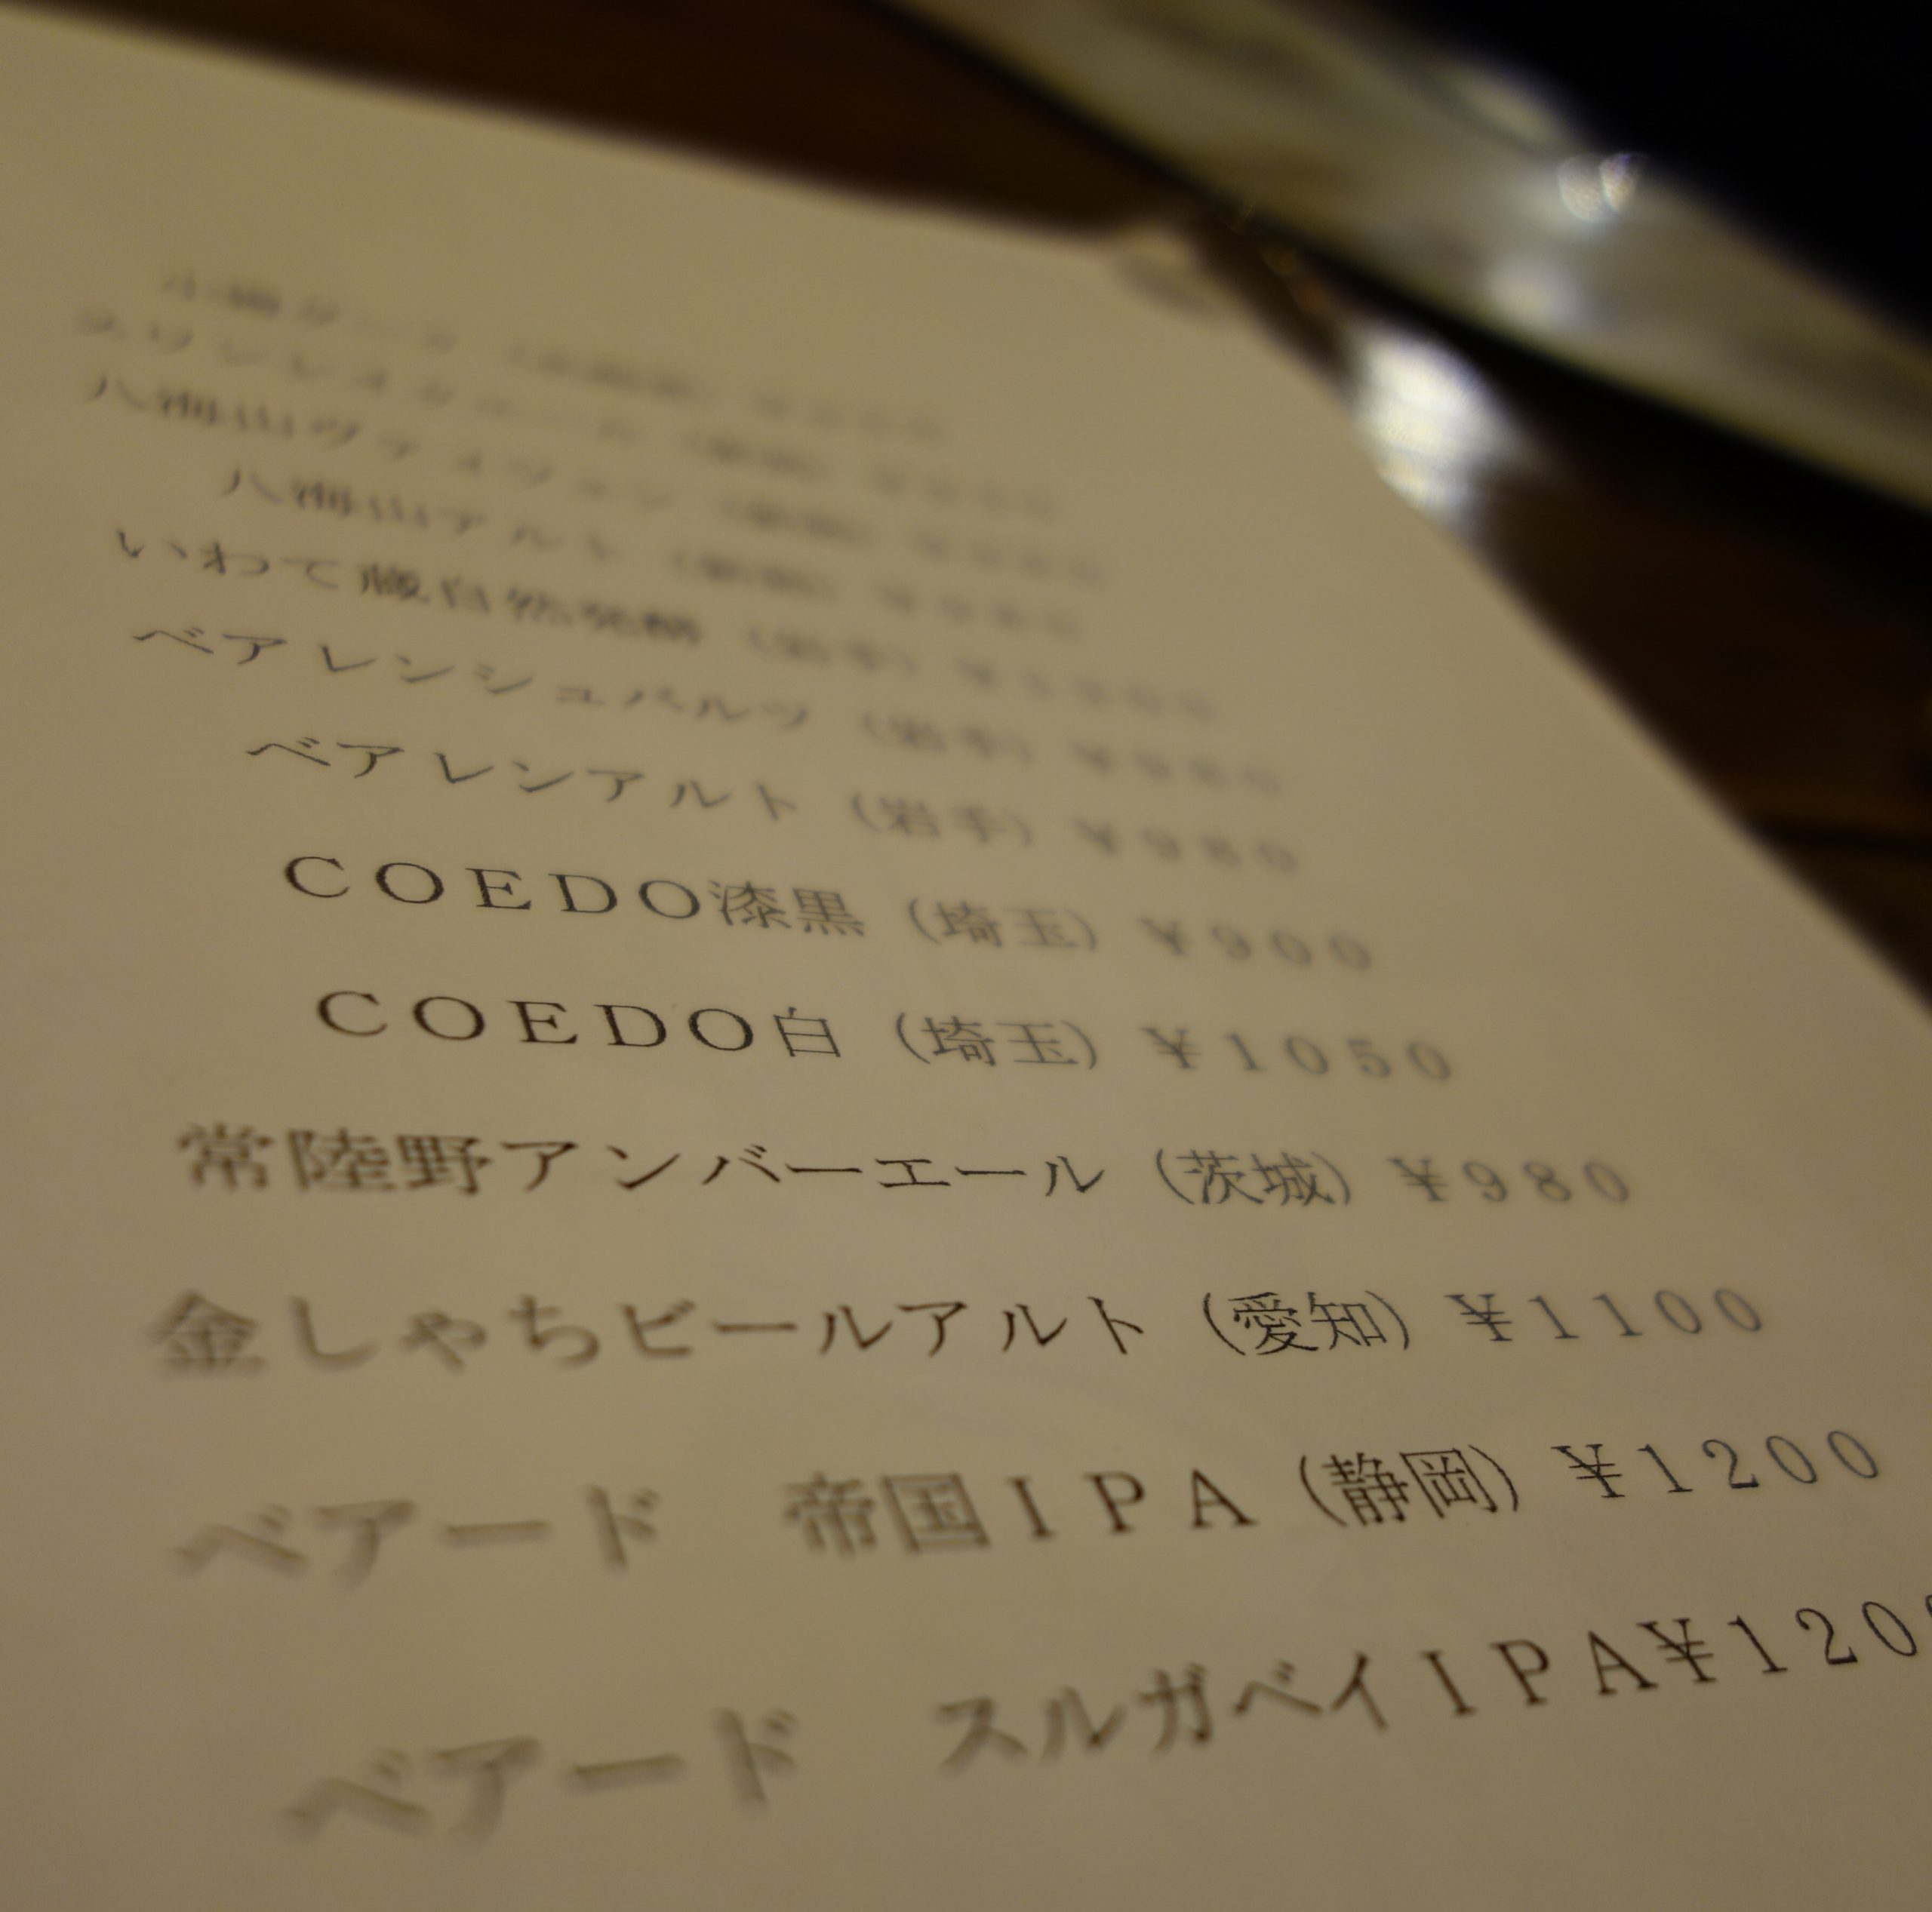 八海山ヴァイツェン
八海山アルト
いわて蔵自然発酵（岩手）
ベアレンシュバルツ（岩手）￥９８０
ベアレンアルト（岩手）￥９８０
ＣＯＥＤＯ漆黒（埼玉）￥９００
ＣＯＥＤＯ白（埼玉）￥１０５０
常陸野アンバーエール（茨城）￥９８０
金しゃちビールアルト（愛知）￥１１００
ベアード　帝国ＩＰＡ（静岡）￥１２００
ベアード　スルガベイＩＰＡ￥１２０